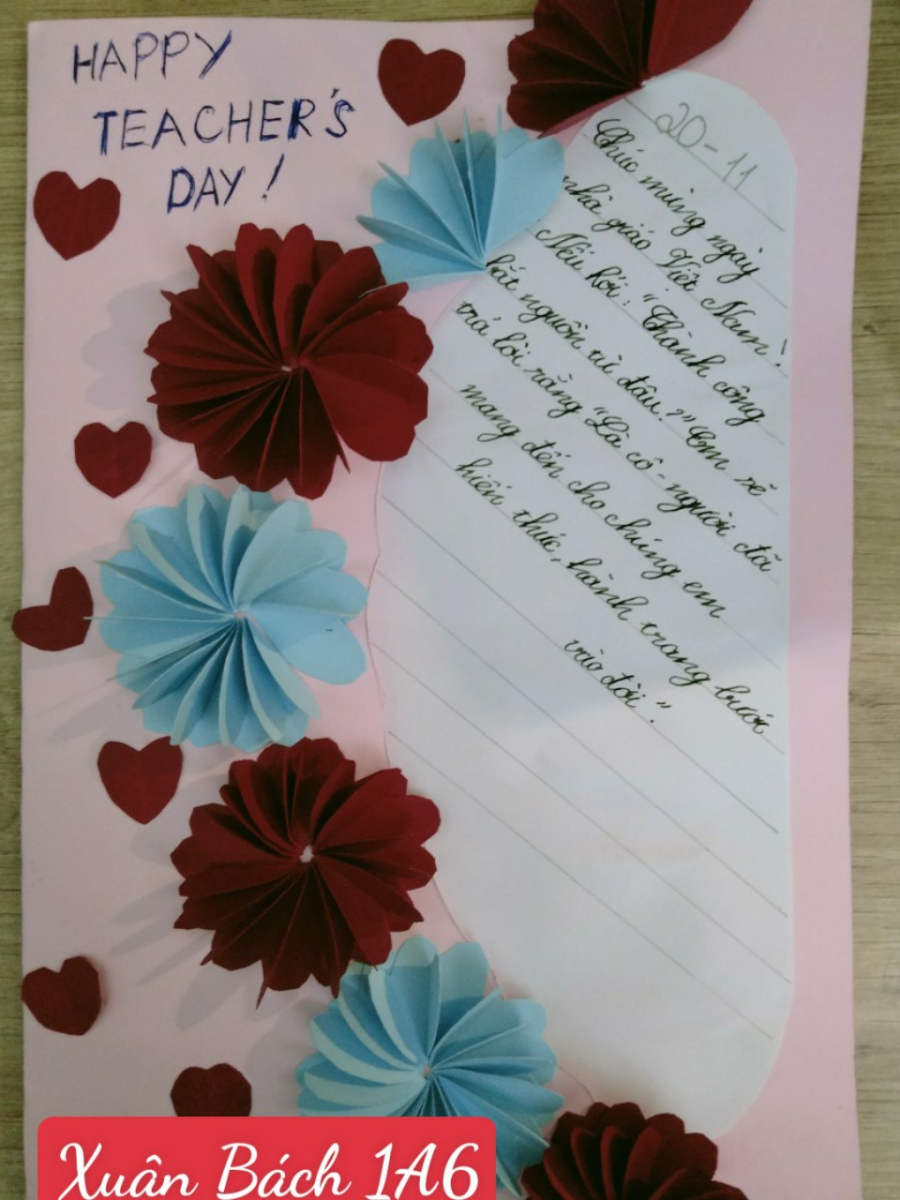 HAPPY
TEACHER'S
DAY!
20-11
Chúc mừng ngày
nhà giáo Việt Nam!
Nếu hỏi: "Thành công
bắt nguồn từ đâu?" Em sẽ
trả lời rằng "Là cô - người đã
mang đến cho chúng em
kiến thức, hành trang bước
vào đời".
Xuân Bách 1A6